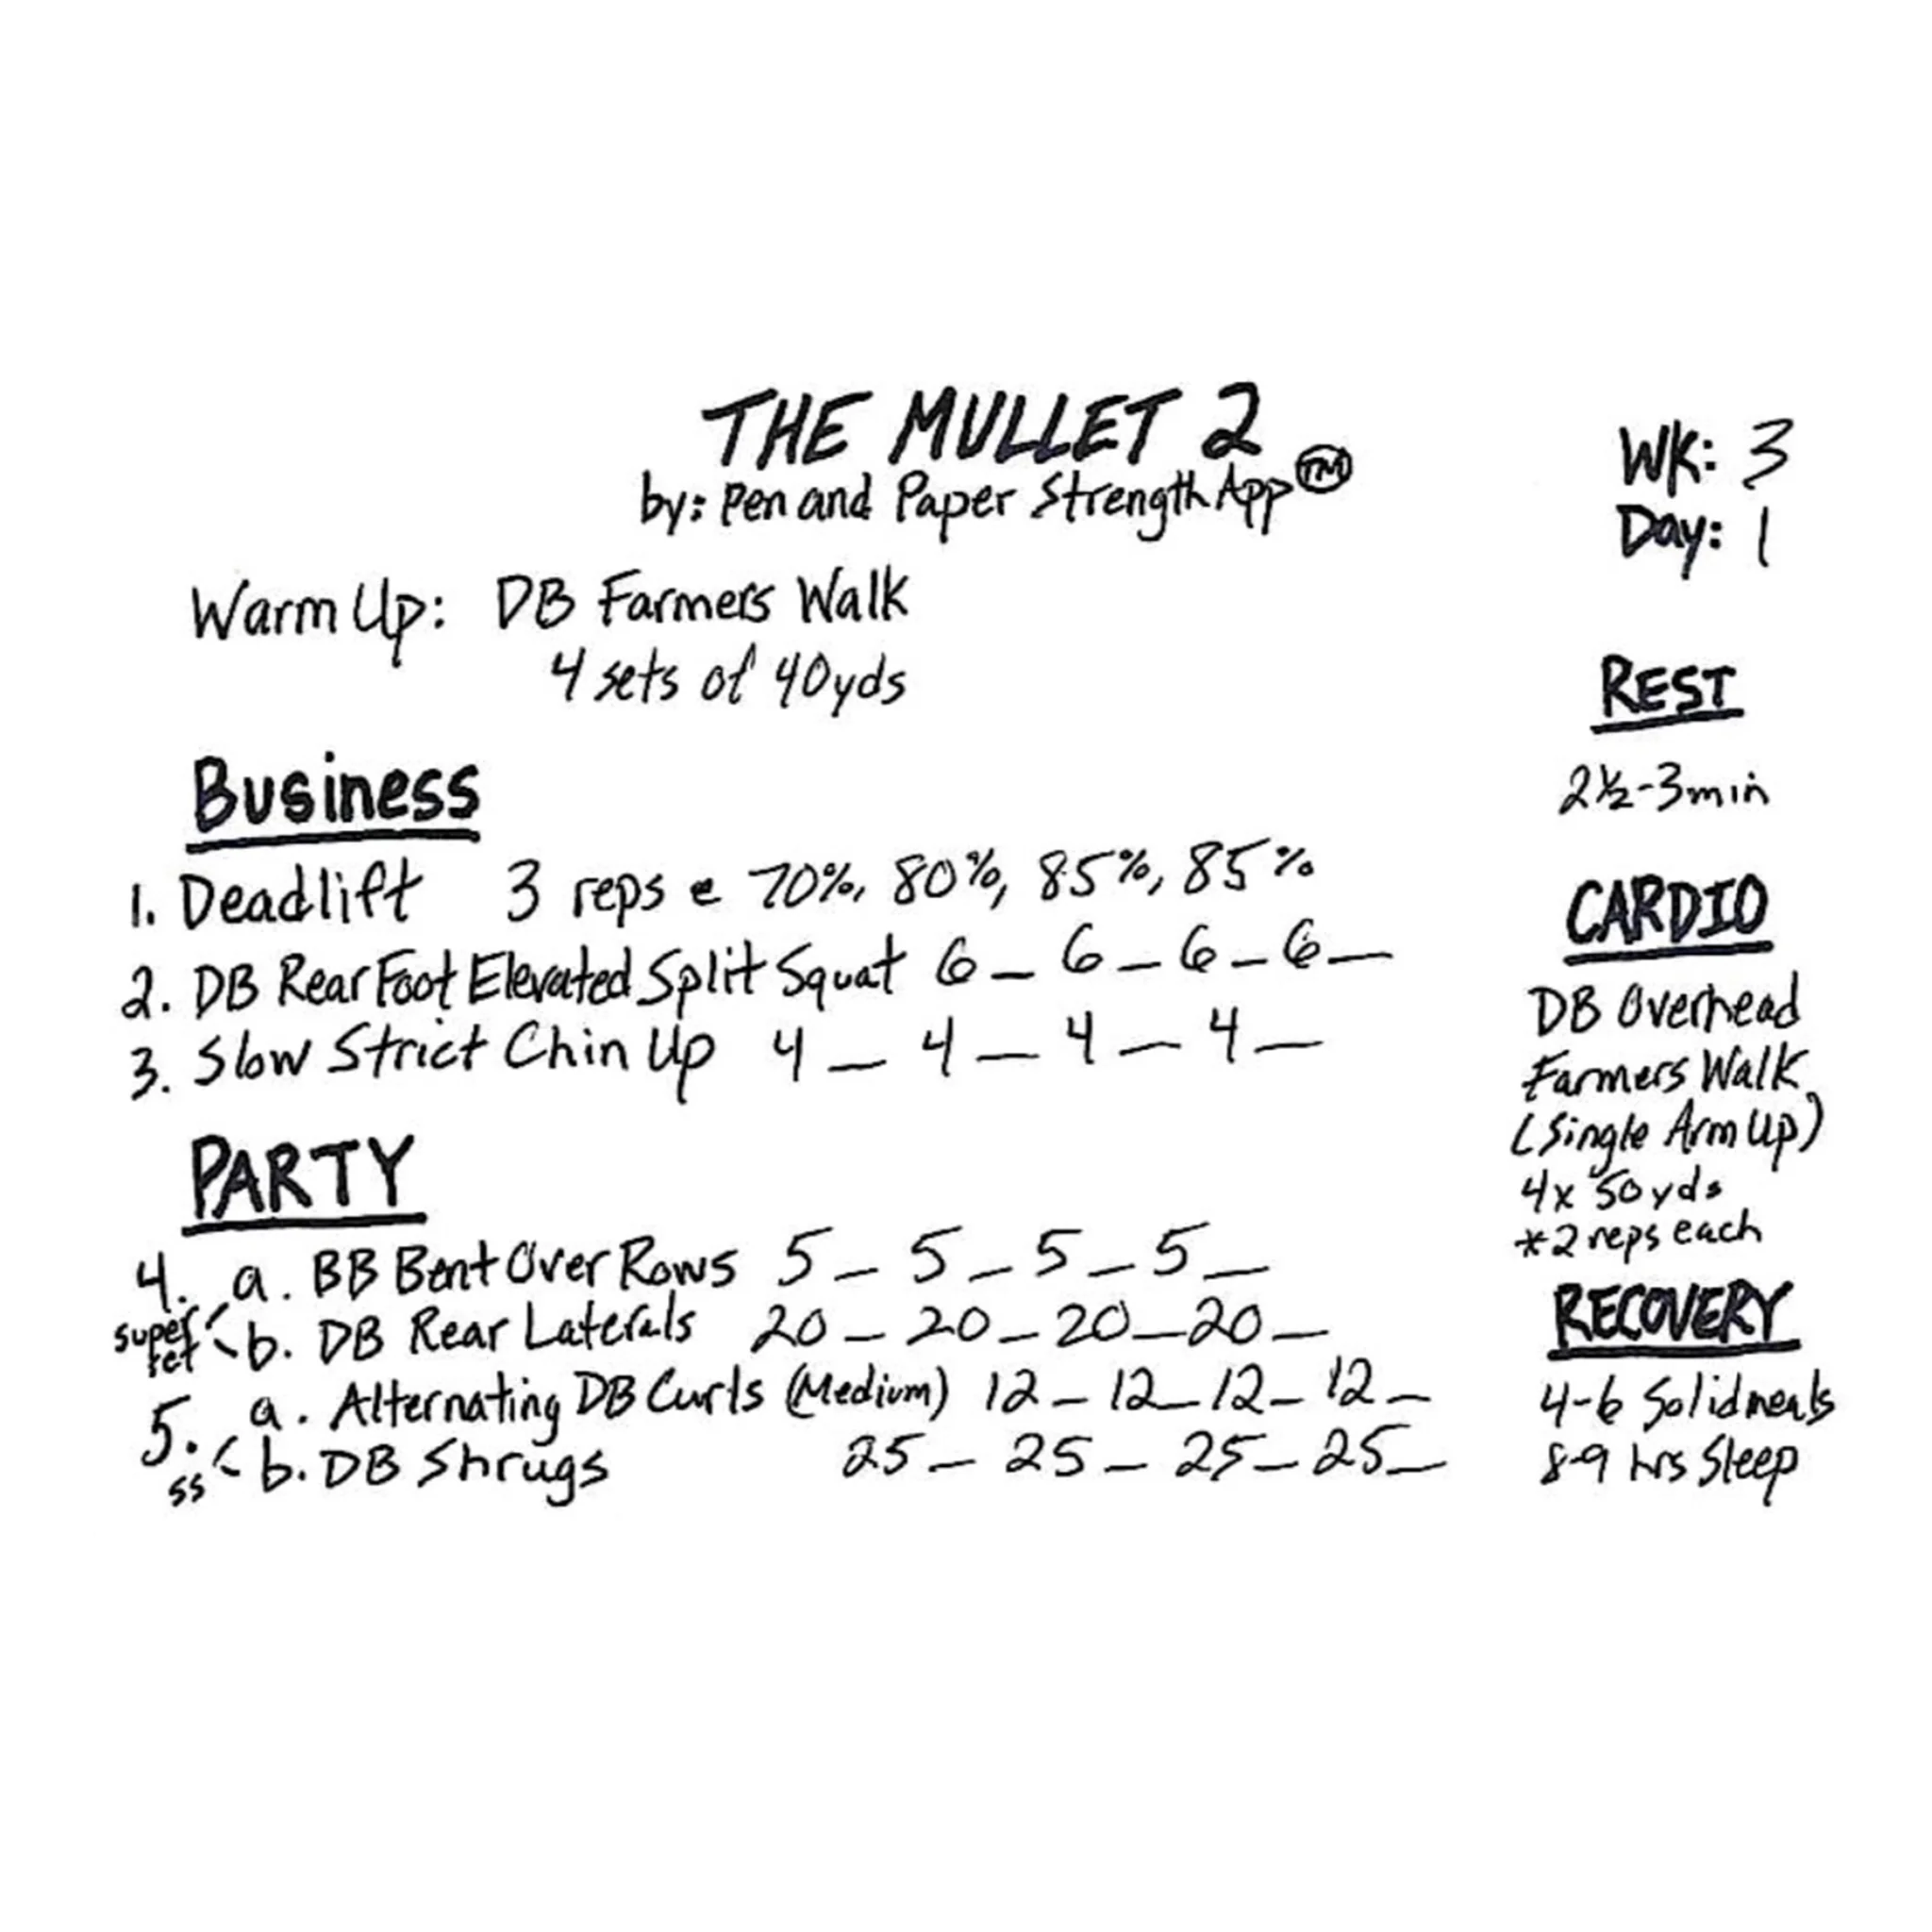 THE MULLET 2
by: Pen and Paper Strength App TM
WK: 3
Day: 1
Warm Up: DB Farmers Walk
4 sets of 40yds
Business
1. Deadlift 3 reps @ 70%, 80%, 85%, 85%
2. DB Rear Foot Elevated Split Squat 6_ 6_ 6_ 6_
3. Slow Strict Chin Up 4_ 4_ 4_ 4_
PARTY
4. a. BB Bent Over Rows 5_ 5_ 5_ 5_
super set < b. DB Rear Laterals 20_ 20_ 20_ 20_
5. a. Alternating DB Curls (Medium) 12_ 12_ 12_ 12_
ss < b. DB Shrugs 25_ 25_ 25_ 25_
REST
2½-3min
CARDIO
DB Overhead
Farmers Walk
(Single Arm Up)
4x 50yds
*2 reps each
RECOVERY
4-6 Solid meals
8-9 hrs Sleep